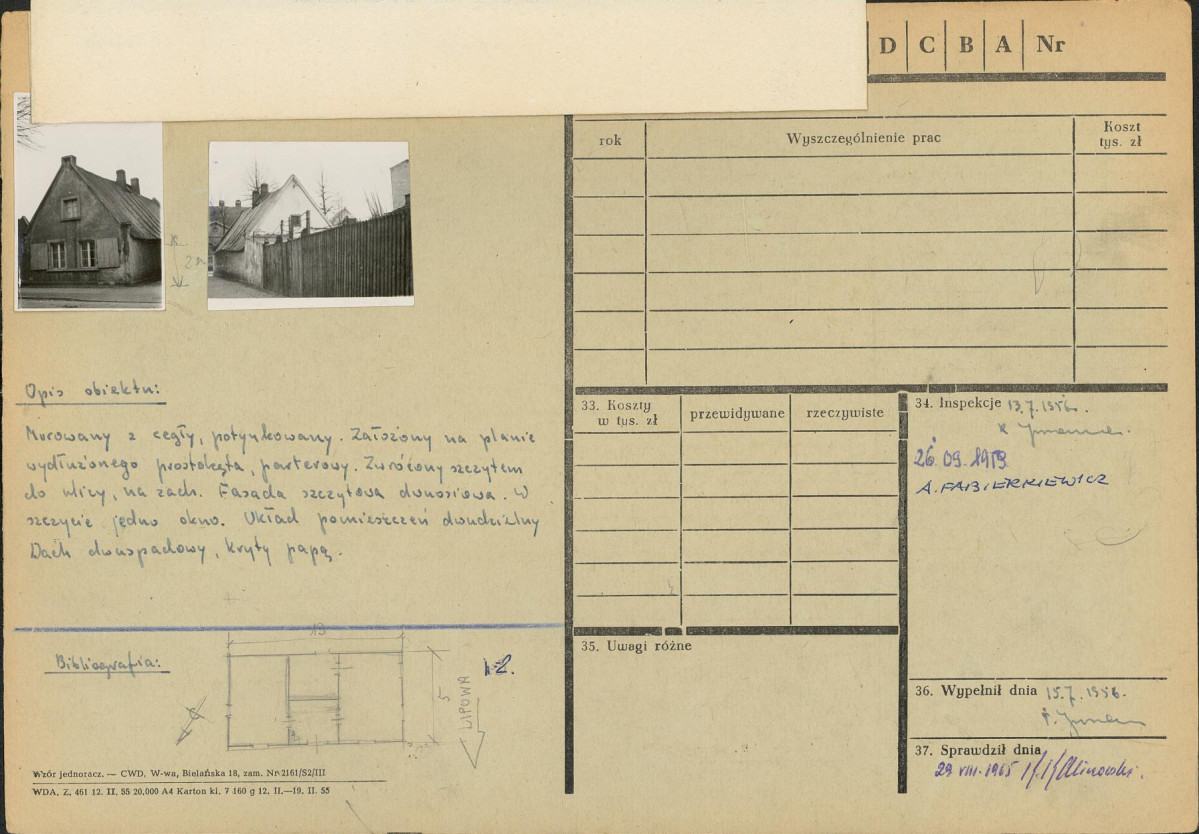 D C B A Nr
rok Wyszczególnienie prac Koszt
tys. zł
Opis obiektu:
Murowany z cegły, potynkowany. Założony na planie
wydłużonego prostokąta, parterowy. Zwrócony szczytem
do ulicy, na zach. Fasada szczytowa dwuosiowa. W
szczycie jedno okno. Układ pomieszczeń dwudzielny
Dach dwuspadowy, kryty papą.
Bibliografia:
13
5
LIPOWA
Wzór jednoracz. — CWD, W-wa, Bielańska 18, zam. Nr 2161/S2/III
WDA, Z, 461 12. II. 55 20.000 A4 Karton kl. 7 160 g 12. II.—19. II. 55
33. Koszty
w tys. zł
przewidywane rzeczywiste
34. Inspekcje 13.7.1956.
26.09.1979
A. FABIERKIEWICZ
35. Uwagi różne
36. Wypełnił dnia 15.7.1956.
37. Sprawdził dnia
29 VIII 1965 Kalinowski.